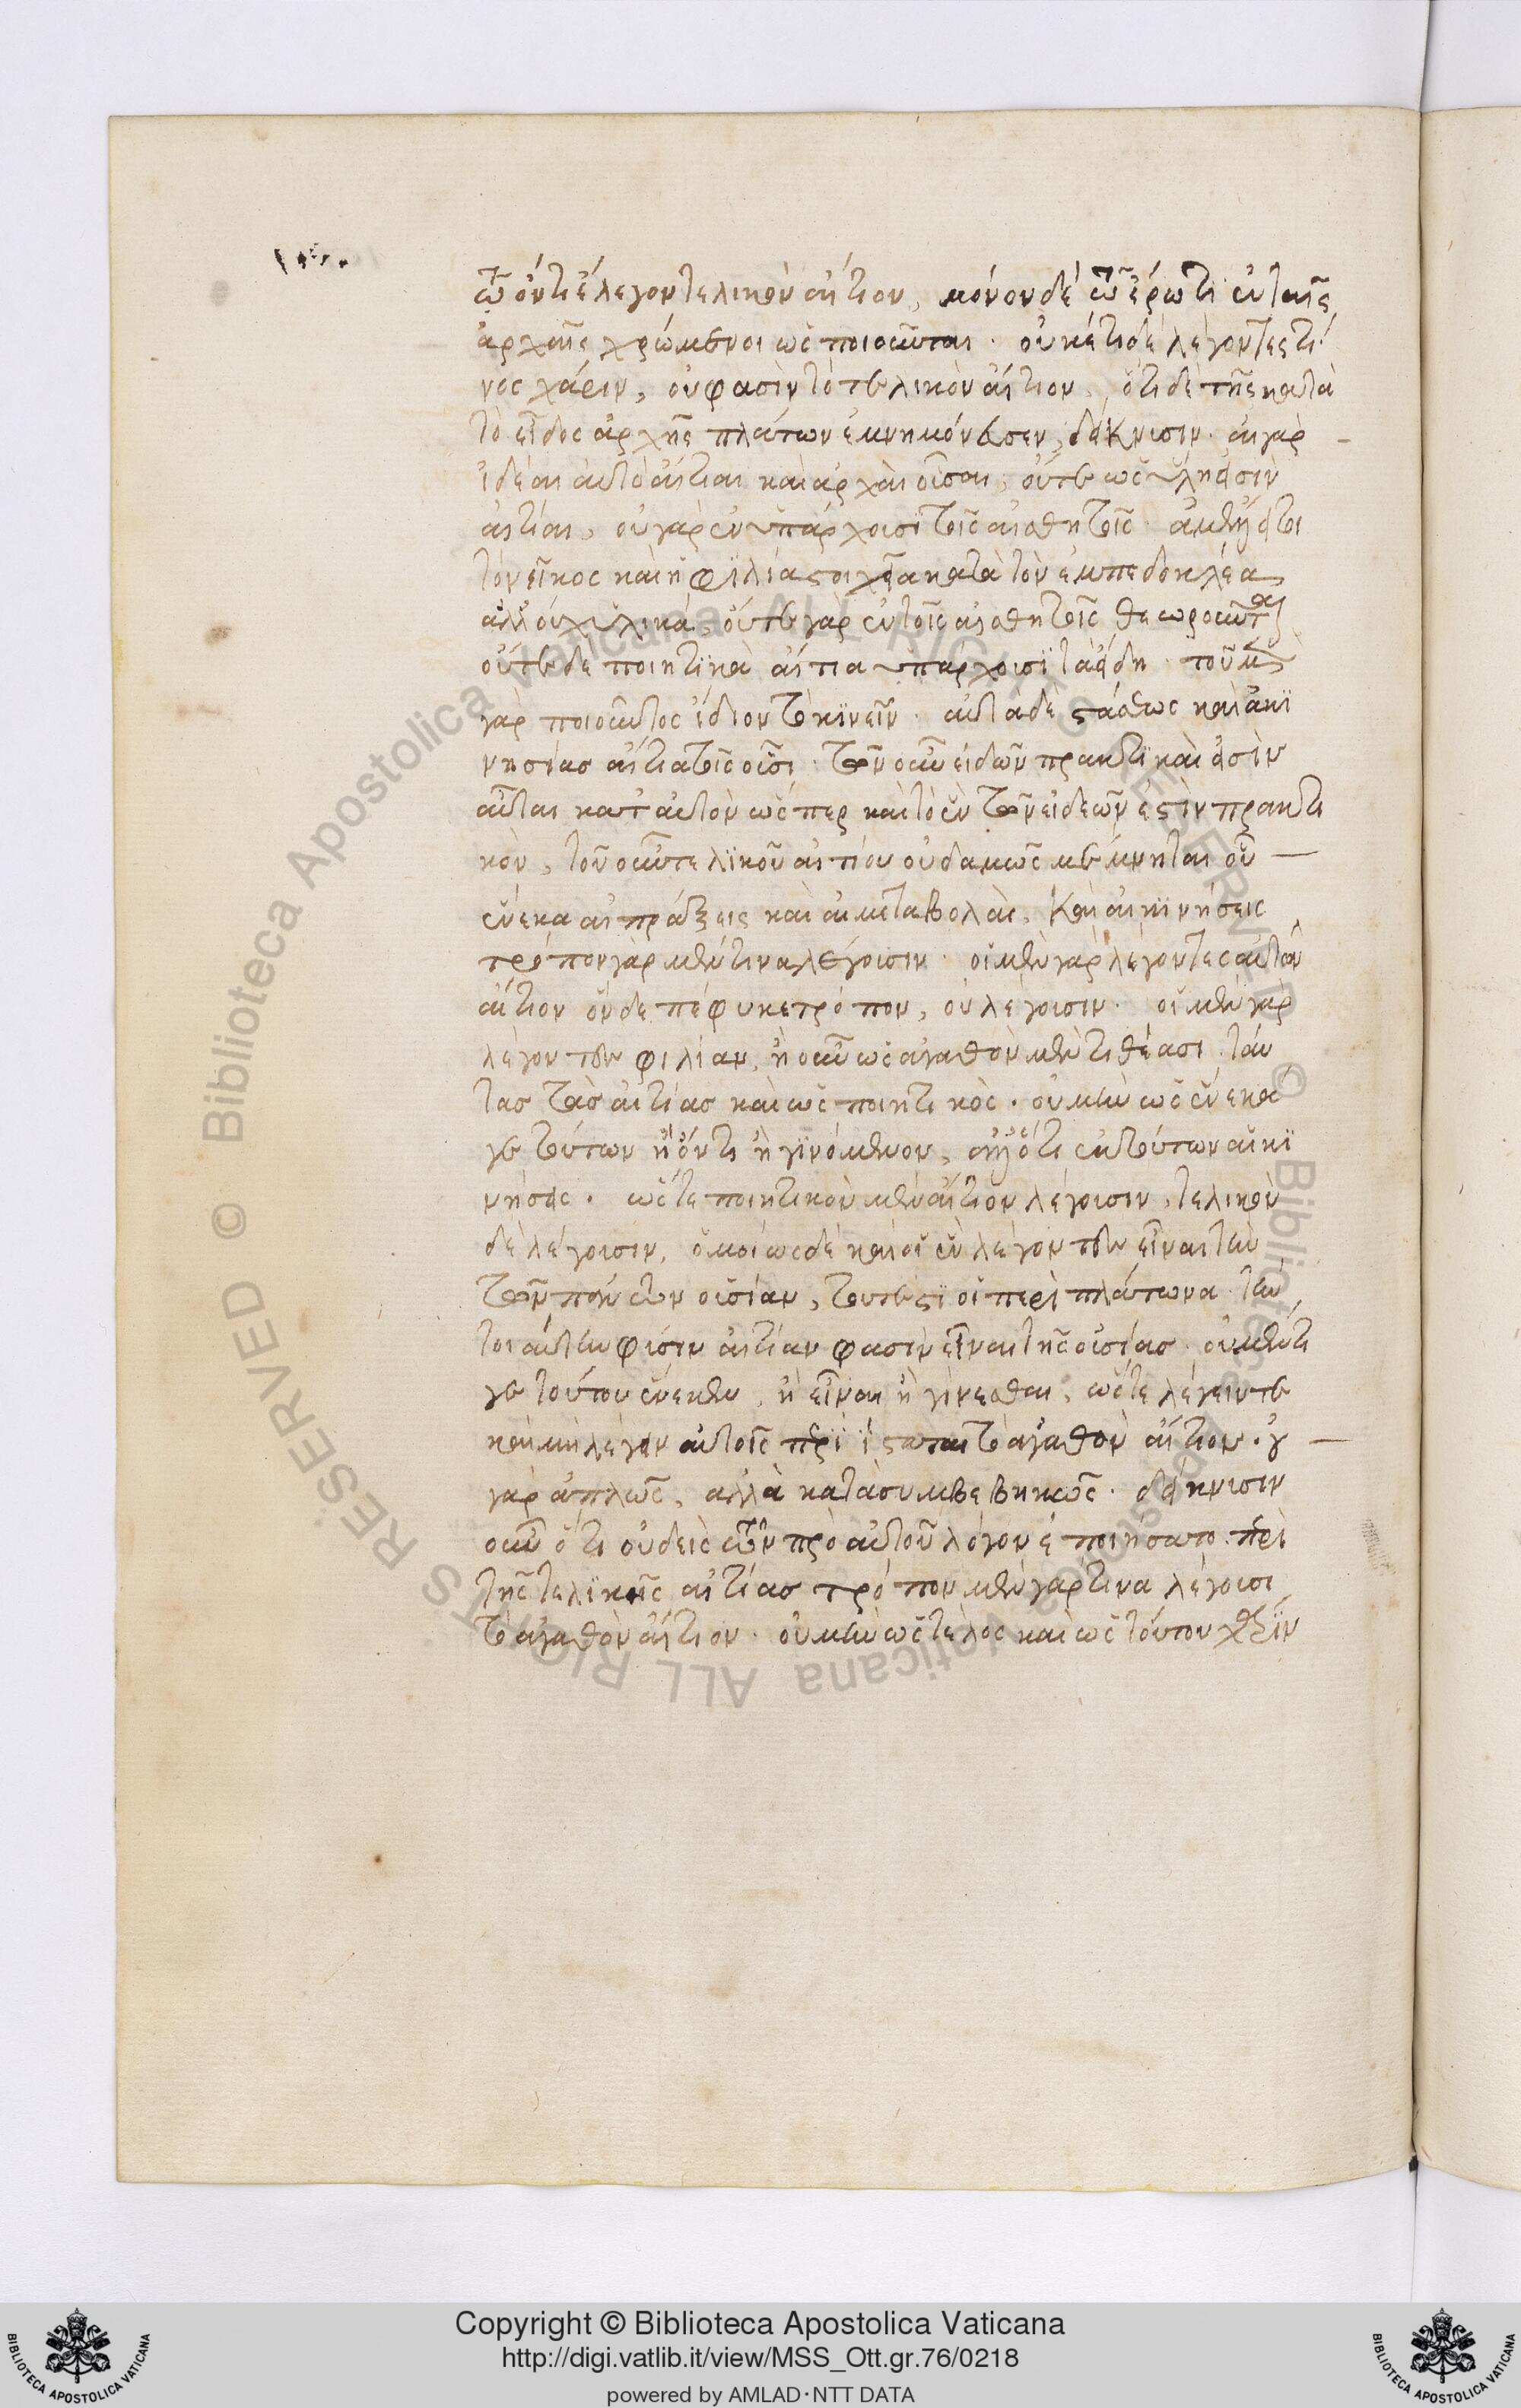 τῷ ὄντι ἔλεγον τελικὸν αἴτιον, μόνον δὲ τῷ ἔρωτι ἐν ταῖς
ἀρχαῖς χρώμενοι ὡς ποιοῦνται · οὐκέτι δὲ λέγοντες τί
νος χάριν, οὐ φασὶν τὸ τελικὸν αἴτιον. ὅτι δὲ τῆς κατὰ
τὸ εἶδος ἀρχῆς πλάτων ἐμνημόνευσεν, δείκνυσιν · αἱ γὰρ
ἰδέαι αὐτῷ αἴτιαι καὶ ἀρχαὶ οὖσαι, οὔτε ὡς ὕλη εἰσὶν
αἰτίαι, οὐ γὰρ ἐνυπάρχουσι τοῖς αἰσθητοῖς ·
τὸ νεῖκος καὶ ἡ φιλία στοιχεῖα κατὰ τὸν ἐμπεδοκλέα,
ἀλλ' οὐχ ὑλικά, οὔτε γὰρ ἐν τοῖς αἰσθητοῖς θεωροῦνται
οὔτε δὲ ποιητικὰ αἴτια ὑπάρχουσι τὰ εἴδη · τοῦ μὲν
γὰρ ποιοῦντος ἴδιον τὸ κινεῖν · αὐτὰ δὲ στάσεως καὶ ἀκι
νησίας αἴτια τοῖς οὖσι · τῶν οὖν εἰδῶν πρακτικαὶ εἰσὶν
αὗται κατ' αὐτὸν ὥσπερ καὶ τὸ ἓν τῶν ἰδεῶν ἐστὶν πρακτι
κὸν, τοῦ οὖν τελικοῦ αἰτίου οὐδαμῶς μέμνηται οὗ
ἕνεκα αἱ πράξεις καὶ αἱ μεταβολαὶ, καὶ αἱ κινήσεις
τρόπον γὰρ μέν τινα λέγουσιν · οἱ μὲν γὰρ λέγοντες αὐτὸν
αἴτιον ὅνδε πέφυκε τρόπον, οὐ λέγουσιν · οἱ μὲν γὰρ
λέγοντες φιλίαν, ἢ νοῦν ὡς ἀγαθὸν μέν τιθέασι ταύ
τας τὰς αἰτίας καὶ ὡς ποιητικὸς · οὐ μὴν ὡς ἕνεκά
γε τούτων ἢ ὄντι ἢ γινόμενον, ἀλλ' ὅτι ἐκ τούτων αἱ κι
νήσεις · ὥστε ποιητικὸν μὲν αἴτιον λέγουσιν, τελικὸν
δὲ λέγουσιν, ὁμοίως δὲ καὶ οἱ ἓν λέγοντες εἶναι τὴν
τῶν πάντων οὐσίαν, τουτέστι οἱ περὶ πλάτωνα τὴν
τοιαύτην φύσιν αἰτίαν φασὶν εἶναι τῆς οὐσίας · οὐ μέντι
γε τούτου ἕνεκεν, ἢ εἶναι ἢ γίνεσθαι, ὥστε λέγειν τε
καὶ μὴ λέγειν αὐτοῖς περιίσταται τὸ ἀγαθὸν αἴτιον · οὐ
γὰρ ἁπλῶς, ἀλλὰ κατὰ συμβεβηκὼς · δείκνυσιν
οὖν ὅτι οὐδεὶς τῶν πρὸ αὐτοῦ λόγον ἐποιήσατο περὶ
τῆς τελικῆς αἰτίας τρόπον μὲν γάρ τινα λέγουσι
τὸ ἀγαθὸν αἴτιον · οὐ μὴν ὡς τέλος καὶ ὡς τούτου χάριν
Copyright © Biblioteca Apostolica Vaticana
http://digi.vatlib.it/view/MSS_Ott.gr.76/0218
powered by AMLAD·NTT DATA